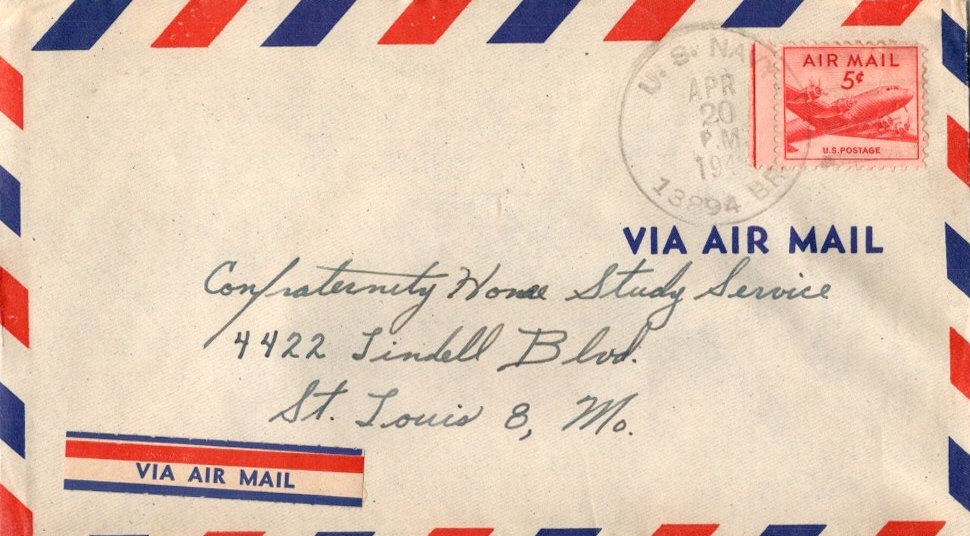 U. S. NAVY
APR
20
P.M.
194
13894 BR.
AIR MAIL
5¢
U.S. POSTAGE
VIA AIR MAIL
Confraternity Home Study Service
4422 Lindell Blvd.
St. Louis 8, Mo.
VIA AIR MAIL